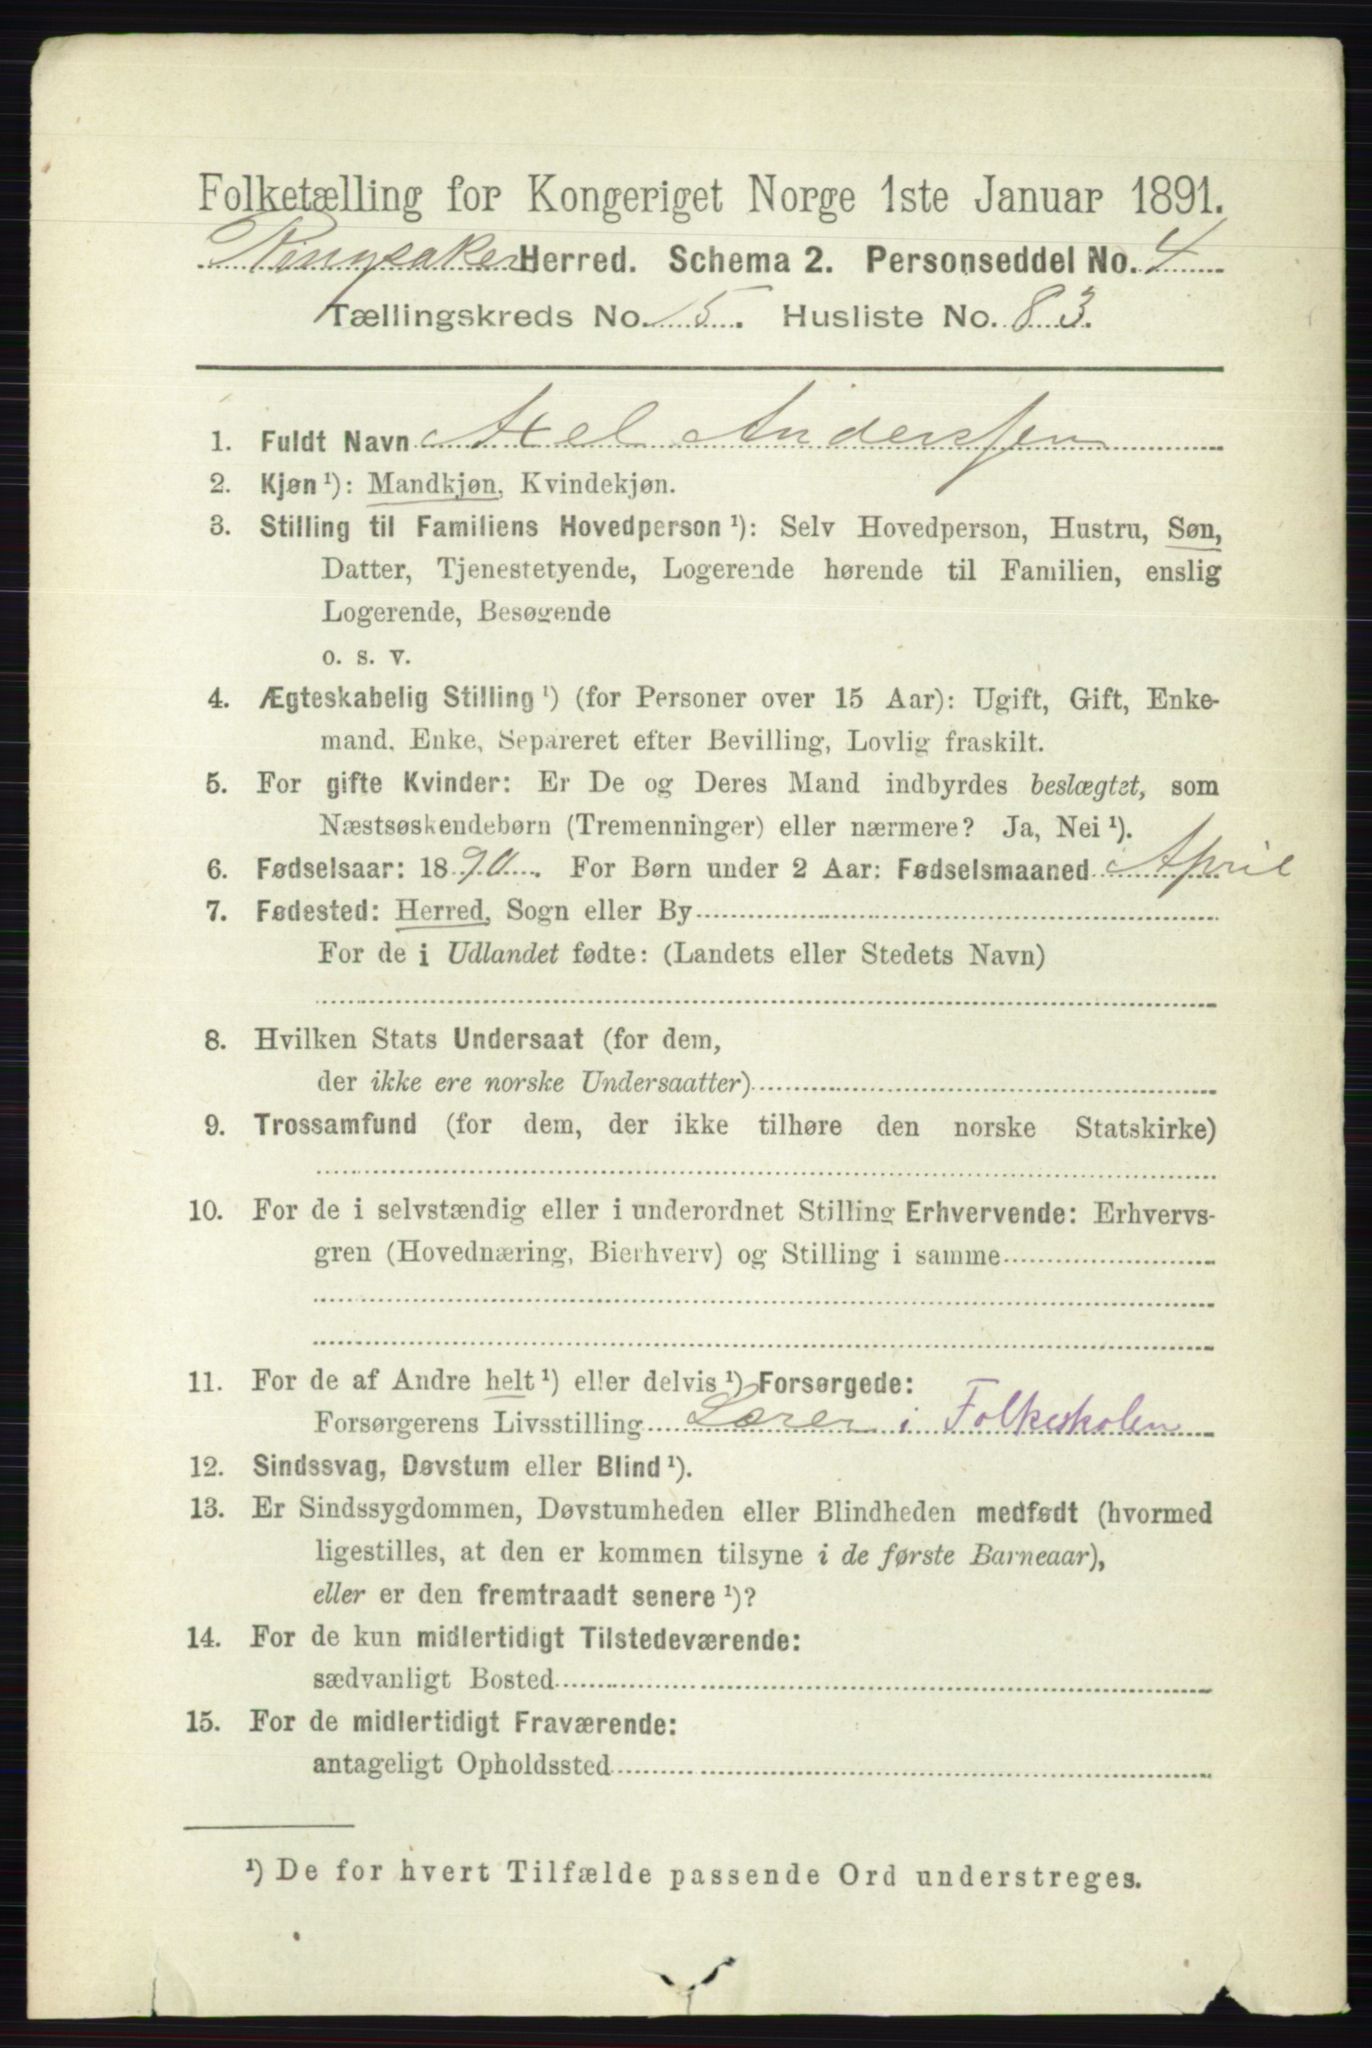 Folketælling for Kongeriget Norge 1ste Januar 1891.
Ringsaker Herred. Schema 2. Personseddel No. 4
Tællingskreds No. 15. Husliste No. 83.
1. Fuldt Navn Axel Anderssen
2. Kjøn¹): Mandkjøn, Kvindekjøn.
3. Stilling til Familiens Hovedperson¹): Selv Hovedperson, Hustru, Søn,
Datter, Tjenestetyende, Logerende hørende til Familien, enslig
Logerende, Besøgende
o. s. v.
4. Ægteskabelig Stilling¹) (for Personer over 15 Aar): Ugift, Gift, Enke-
mand, Enke, Separeret efter Bevilling, Lovlig fraskilt.
5. For gifte Kvinder: Er De og Deres Mand indbyrdes beslægtet, som
Næstsøskendebørn (Tremenninger) eller nærmere? Ja, Nei¹).
6. Fødselsaar: 1890. For Børn under 2 Aar: Fødselsmaaned April
7. Fødested: Herred, Sogn eller By
For de i Udlandet fødte: (Landets eller Stedets Navn)
8. Hvilken Stats Undersaat (for dem,
der ikke ere norske Undersaatter)
9. Trossamfund (for dem, der ikke tilhøre den norske Statskirke)
10. For de i selvstændig eller i underordnet Stilling Erhvervende: Erhvervs-
gren (Hovednæring, Bierhverv) og Stilling i samme
11. For de af Andre helt¹) eller delvis¹) Forsørgede:
Forsørgerens Livsstilling Lærer i Folkeskolen
12. Sindssvag, Døvstum eller Blind¹).
13. Er Sindssygdommen, Døvstumheden eller Blindheden medfødt (hvormed
ligestilles, at den er kommen tilsyne i de første Barneaar),
eller er den fremtraadt senere¹)?
14. For de kun midlertidigt Tilstedeværende:
sædvanligt Bosted
15. For de midlertidigt Fraværende:
antageligt Opholdssted
¹) De for hvert Tilfælde passende Ord understreges.